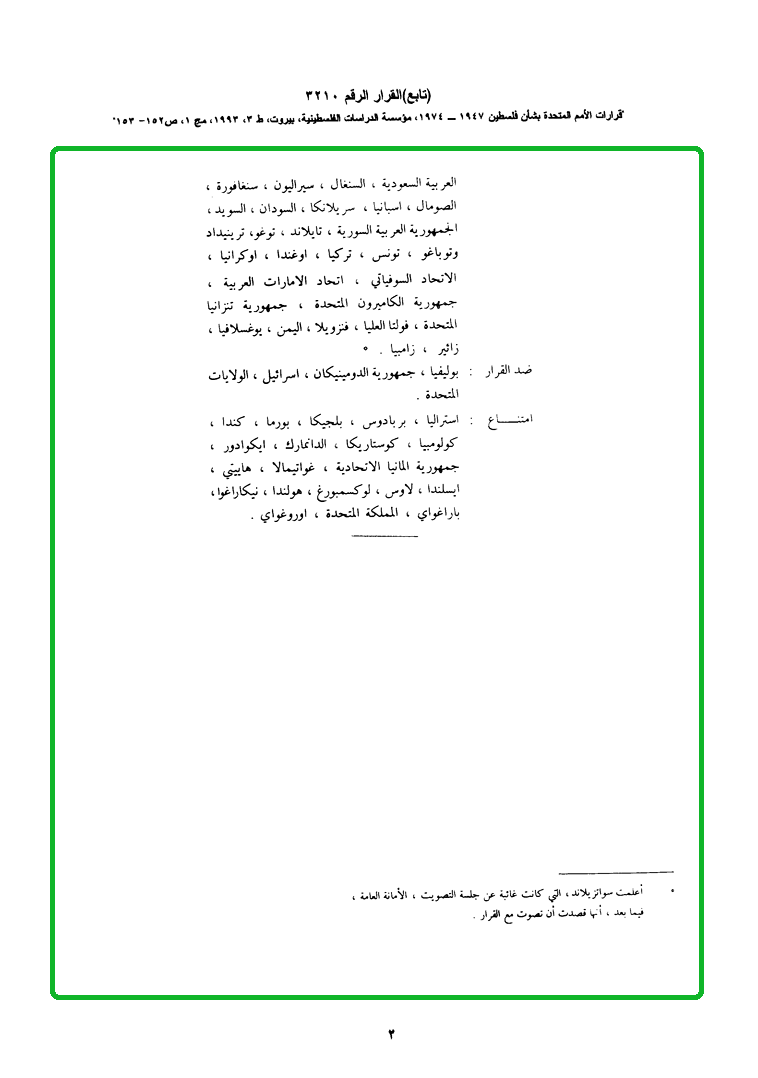 (تابع)القرار الرقم ٣٢١٠
"قرارات الأمم المتحدة بشأن فلسطين ١٩٤٧ ــ ١٩٧٤، مؤسسة الدراسات الفلسطينية، بيروت، ط ٣، ١٩٩٣، مج ١، ص١٥٢- ١٥٣"
العربية السعودية ، السنغال ، سيراليون ، سنغافورة ،
الصومال ، اسبانيا ، سريلانكا ، السودان ، السويد ،
الجمهورية العربية السورية ، تايلاند ، توغو، ترينيداد
وتوباغو ، تونس ، تركيا ، اوغندا ، اوكرانيا ،
الاتحاد السوفياتي ، اتحاد الامارات العربية ،
جمهورية الكاميرون المتحدة ، جمهورية تنزانيا
المتحدة ، فولتا العليا ، فنزويلا ، اليمن ، يوغسلافيا ،
زائير ، زامبيا . *
ضد القرار : بوليفيا ، جمهورية الدومينيكان ، اسرائيل ، الولايات
المتحدة .
امتنـــــاع : استراليا ، بربادوس ، بلجيكا ، بورما ، كندا ،
كولومبيا ، كوستاريكا ، الدانمارك ، ايكوادور ،
جمهورية المانيا الاتحادية ، غواتيمالا ، هاييتي ،
ايسلندا ، لاوس ، لوكسمبورغ ، هولندا ، نيكاراغوا،
باراغواي ، المملكة المتحدة ، اوروغواي .
* أعلمت سوازيلاند ، التي كانت غائبة عن جلسة التصويت ، الأمانة العامة ،
فيما بعد ، أنها قصدت أن تصوت مع القرار .
٣